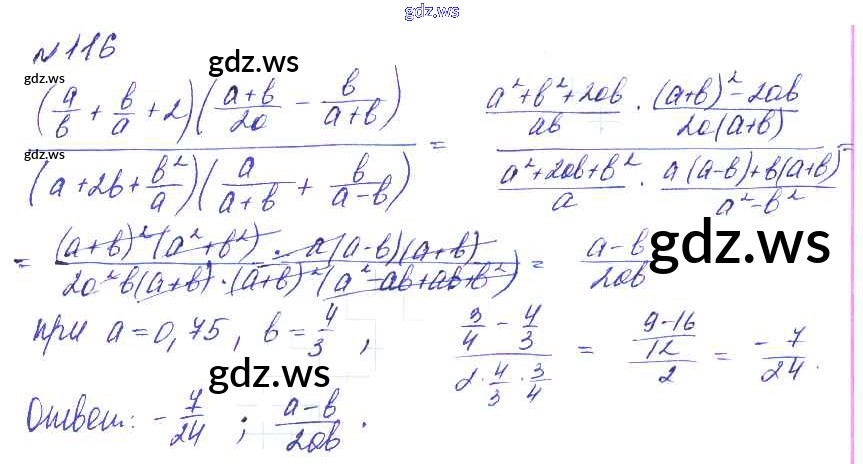 gdz.ws
№116
gdz.ws
gdz.ws
(a/b + b/a + 2)((a+b)/2a − b/(a+b)) / (a+2b+b²/a)(a/(a+b) + b/(a−b)) = (a²+b²+2ab)/ab · ((a+b)²−2ab)/2a(a+b) / (a²+2ab+b²)/a · (a(a−b)+b(a+b))/(a²−b²) =
gdz.ws
= (a+b)²(a²+b²) · a(a−b)(a+b) / 2a²b(a+b) · (a+b)²(a²−ab+ab+b²) = (a−b)/2ab
gdz.ws
при a=0,75, b=4/3, (3/4 − 4/3)/(2·4/3·3/4) = ((9−16)/12)/2 = −7/24.
gdz.ws
gdz.ws
Ответ: −7/24 ; (a−b)/2ab.
gdz.ws